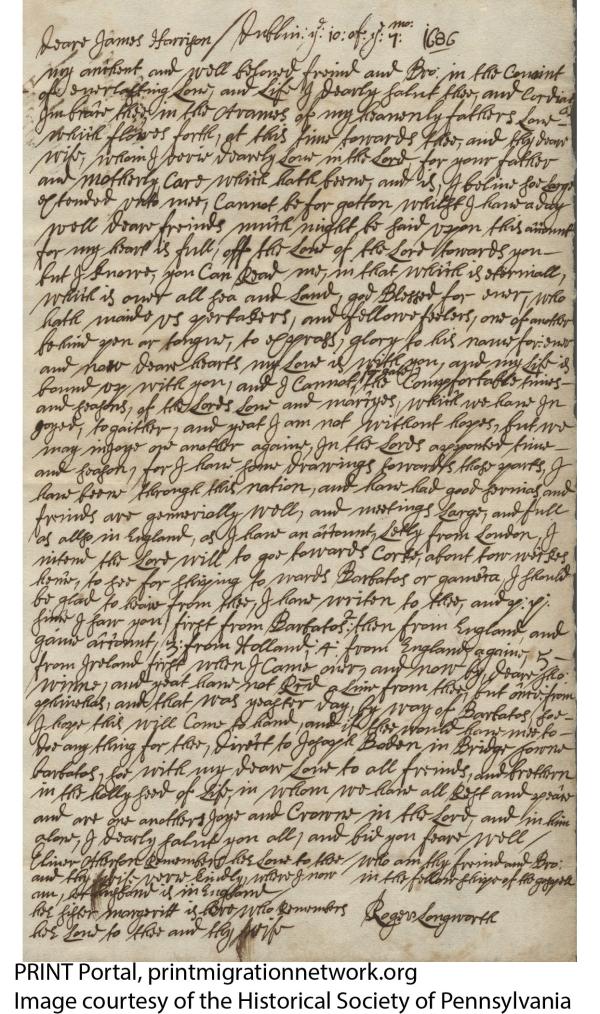 Deare James Harrison / Dublin: ye: 10: of: ye: 7: mo: 1686
my antient and well beloved freind and Bro: in the Covnint
of everlasting Love, and Life I dearly salut thee, and Cordial
Imbrace thee in the of my heavenly fathers Love
which flowes forth, at this time towards thee, and thy deare
wife, whom I verie dearely Love in the Lord for your father
and motherly Care which hath beene, and is, I beline soe Large
extended unto mee, Cannot be for gotton whilst I have a day
well deare freinds much might be said upon this acount
for my heart is full, off the Love of the Lord towards you
but I knowe, you Can Read me, in that which is eternall,
which is over all sea and Land, god Blessed for ever, who
hath maide us pertakers, and fellowe feelers, one of another
behind pen or tongue, to express, glory to his name for: ever
and now deare hearts my Love is with you, and my Life is
bound up with you, and I Cannot the Compfortable times
and seasons, of the Lords Love and marcyes, which we have In
Joyed, togaither, and yeat I am not without hopes, but we
may injoye one another againe, In the Lords apponted time
and season, for I have some drawings towards those parts, I
have beene through this nation, and have had good servis and
freinds are generially well, and meetings Large, and full
as allso in England, as I have an acount, Letly from London, I
intend the Lord will to goe towards Corke, about tow weekes
hence, to see for shiping to wards Barbatos or I should
be glad to heare from thee, I have writen to thee, and
since I saw you, first from Barbatos: 2: then from England, and
gave acount, 3: from Holland: 4: from England againe, 5
from Ireland first when I Came over, and now by, deare Tho:
Winne, and yeat have not Recd a Line from thee, but once from
phinehas, and that was yeaster day, by way of Barbatos, soe
I hope this will Come to hand, and if thee would have mee to
doe any thing for thee, direct to Joseph Boden in Bridge towne
barbatos, soe with my deare Love to all freinds, and brethern
in the holly seed of Life, in whom we have all Rest and peace
and are one anothers Joye and Crowne in the Lord, and in him
alone, I dearly salut you all, and bid you feare well
Elinor Remembers hes Love to thee who am thy freind and Bro:
and thy wife verie kindly, where I now in the fellowshipe of the gospell
am, hes husband is in England
hes sister margeritt is here, who Remembers Roger Longworth
hes Love to thee and thy wife
PRINT Portal, printmigrationnetwork.org
Image courtesy of the Historical Society of Pennsylvania